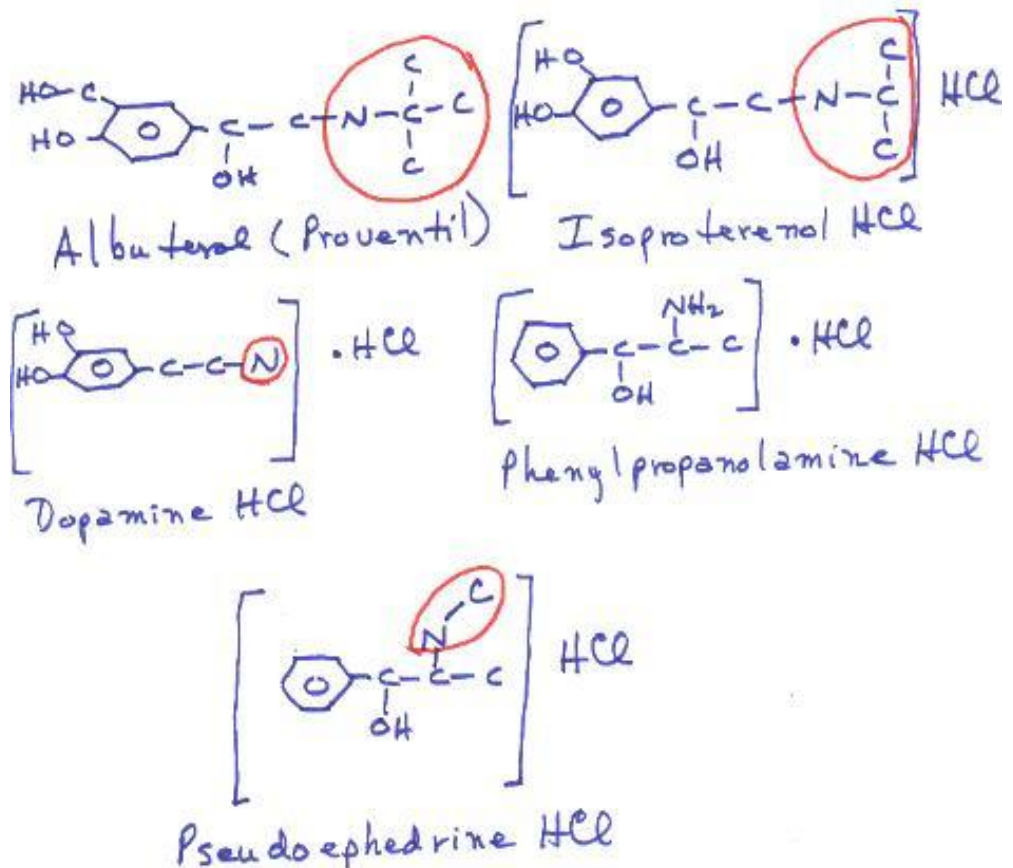 C
HO-C
HO
C-C-N-C-C
OH
C
Albuterol (Proventil)
HO
HO
C
C-C-N-C
OH
C
HCl
Isoproterenol HCl
HO
HO
C-C-N
.HCl
Dopamine HCl
NH2
C-C-C
OH
.HCl
Phenylpropanolamine HCl
C
N
C-C-C
OH
HCl
Pseudoephedrine HCl